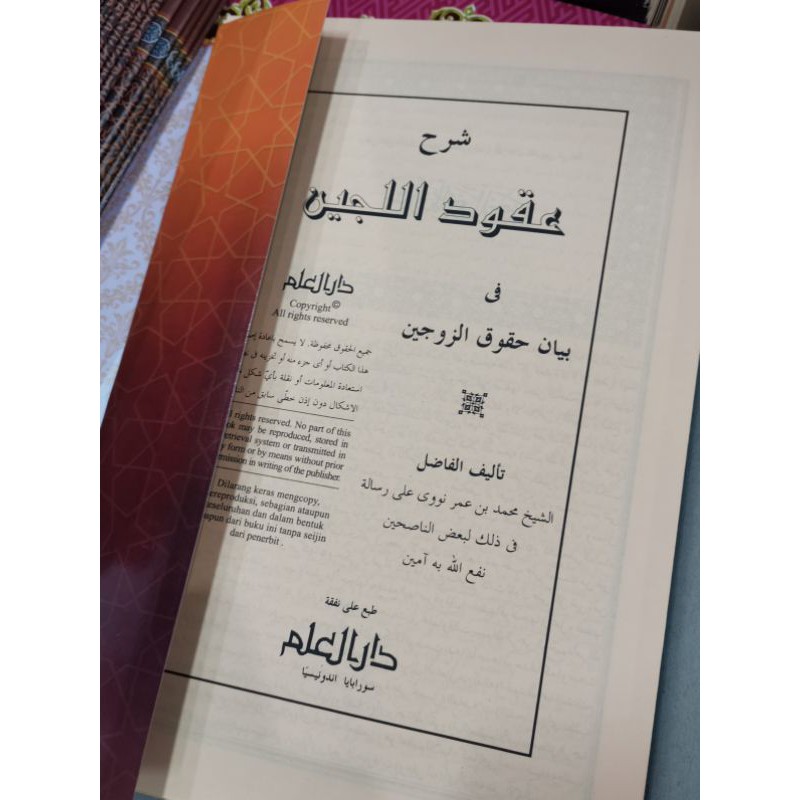 شرح
عقود اللجين
فى
بيان حقوق الزوجين
تأليف الفاضل
الشيخ محمد بن عمر نووى على رسالة
فى ذلك لبعض الناصحين
نفع الله به آمين
طبع على نفقة
دار العلم
سورابايا اندونيسيا
دار العلم
Copyright©
All rights reserved
جميع الحقوق محفوظة. لا يسمح بإعادة
هذا الكتاب أو أى جزء منه أو تخزينه فى
استعادة المعلومات أو نقلة بأيّ شكل
الاشكال دون إذن خطّى سابق من
rights reserved. No part of this
may be reproduced, stored in
system or transmitted in
form or by means without prior
in writing of the publisher.
Dilarang keras mengcopy,
sebagian ataupun
dan dalam bentuk
dari buku ini tanpa seijin
dari penerbit .